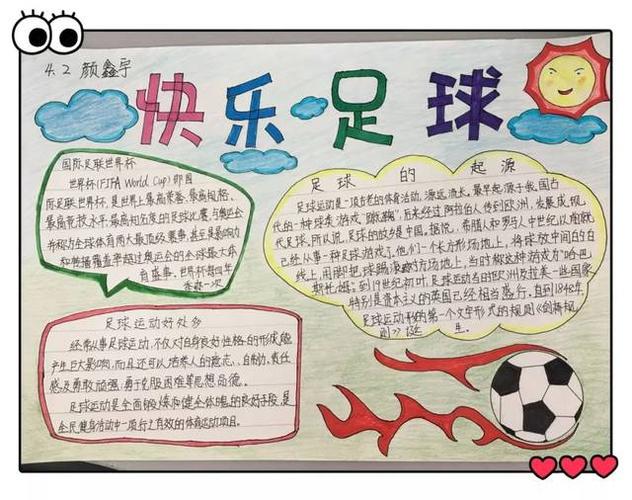 4.2 颜鑫宇
快乐足球
国际足联世界杯
世界杯(FIFA World Cup)即国
际足联世界杯,是世界上最高荣誉、最高规格、
最高竞技水平、最高知名度的足球比赛,与奥运会
并称为全球体育两大最顶级赛事,甚至是影响力
和转播覆盖率超过奥运会的全球最大体
育盛事。世界杯每四年
举办一次
足球的起源
足球运动是一项古老的体育活动,源远流长。最早起源于我国古
代的一种球类游戏“蹴鞠”,后来经过阿拉伯人传到欧洲,发展成现
代足球。所以说,足球的故乡是中国。据说,希腊人和罗马人中世纪以前就
已经从事一种足球游戏了。他们在一个长方形场地上,将球放中间的白
线上,用脚把球踢滚到对方场地上,当时称这种游戏为“哈巴
斯托姆”。到19世纪初叶,足球运动在当时欧洲及拉美一些国家
特别是资本主义的英国已经相当盛行。直到1848年,
足球运动的第一个文字形式的规则《剑桥规
则》诞生。
足球运动好处多
经常从事足球运动,不仅对自身良好性格的形成能
产生巨大影响,而且还可以培养人的意志、自制力、责任
感及勇敢顽强、勇于克服困难等思想品德。
足球运动是全面锻炼和健全体魄的良好手段,是
全民健身活动中一项行之有效的体育运动项目。